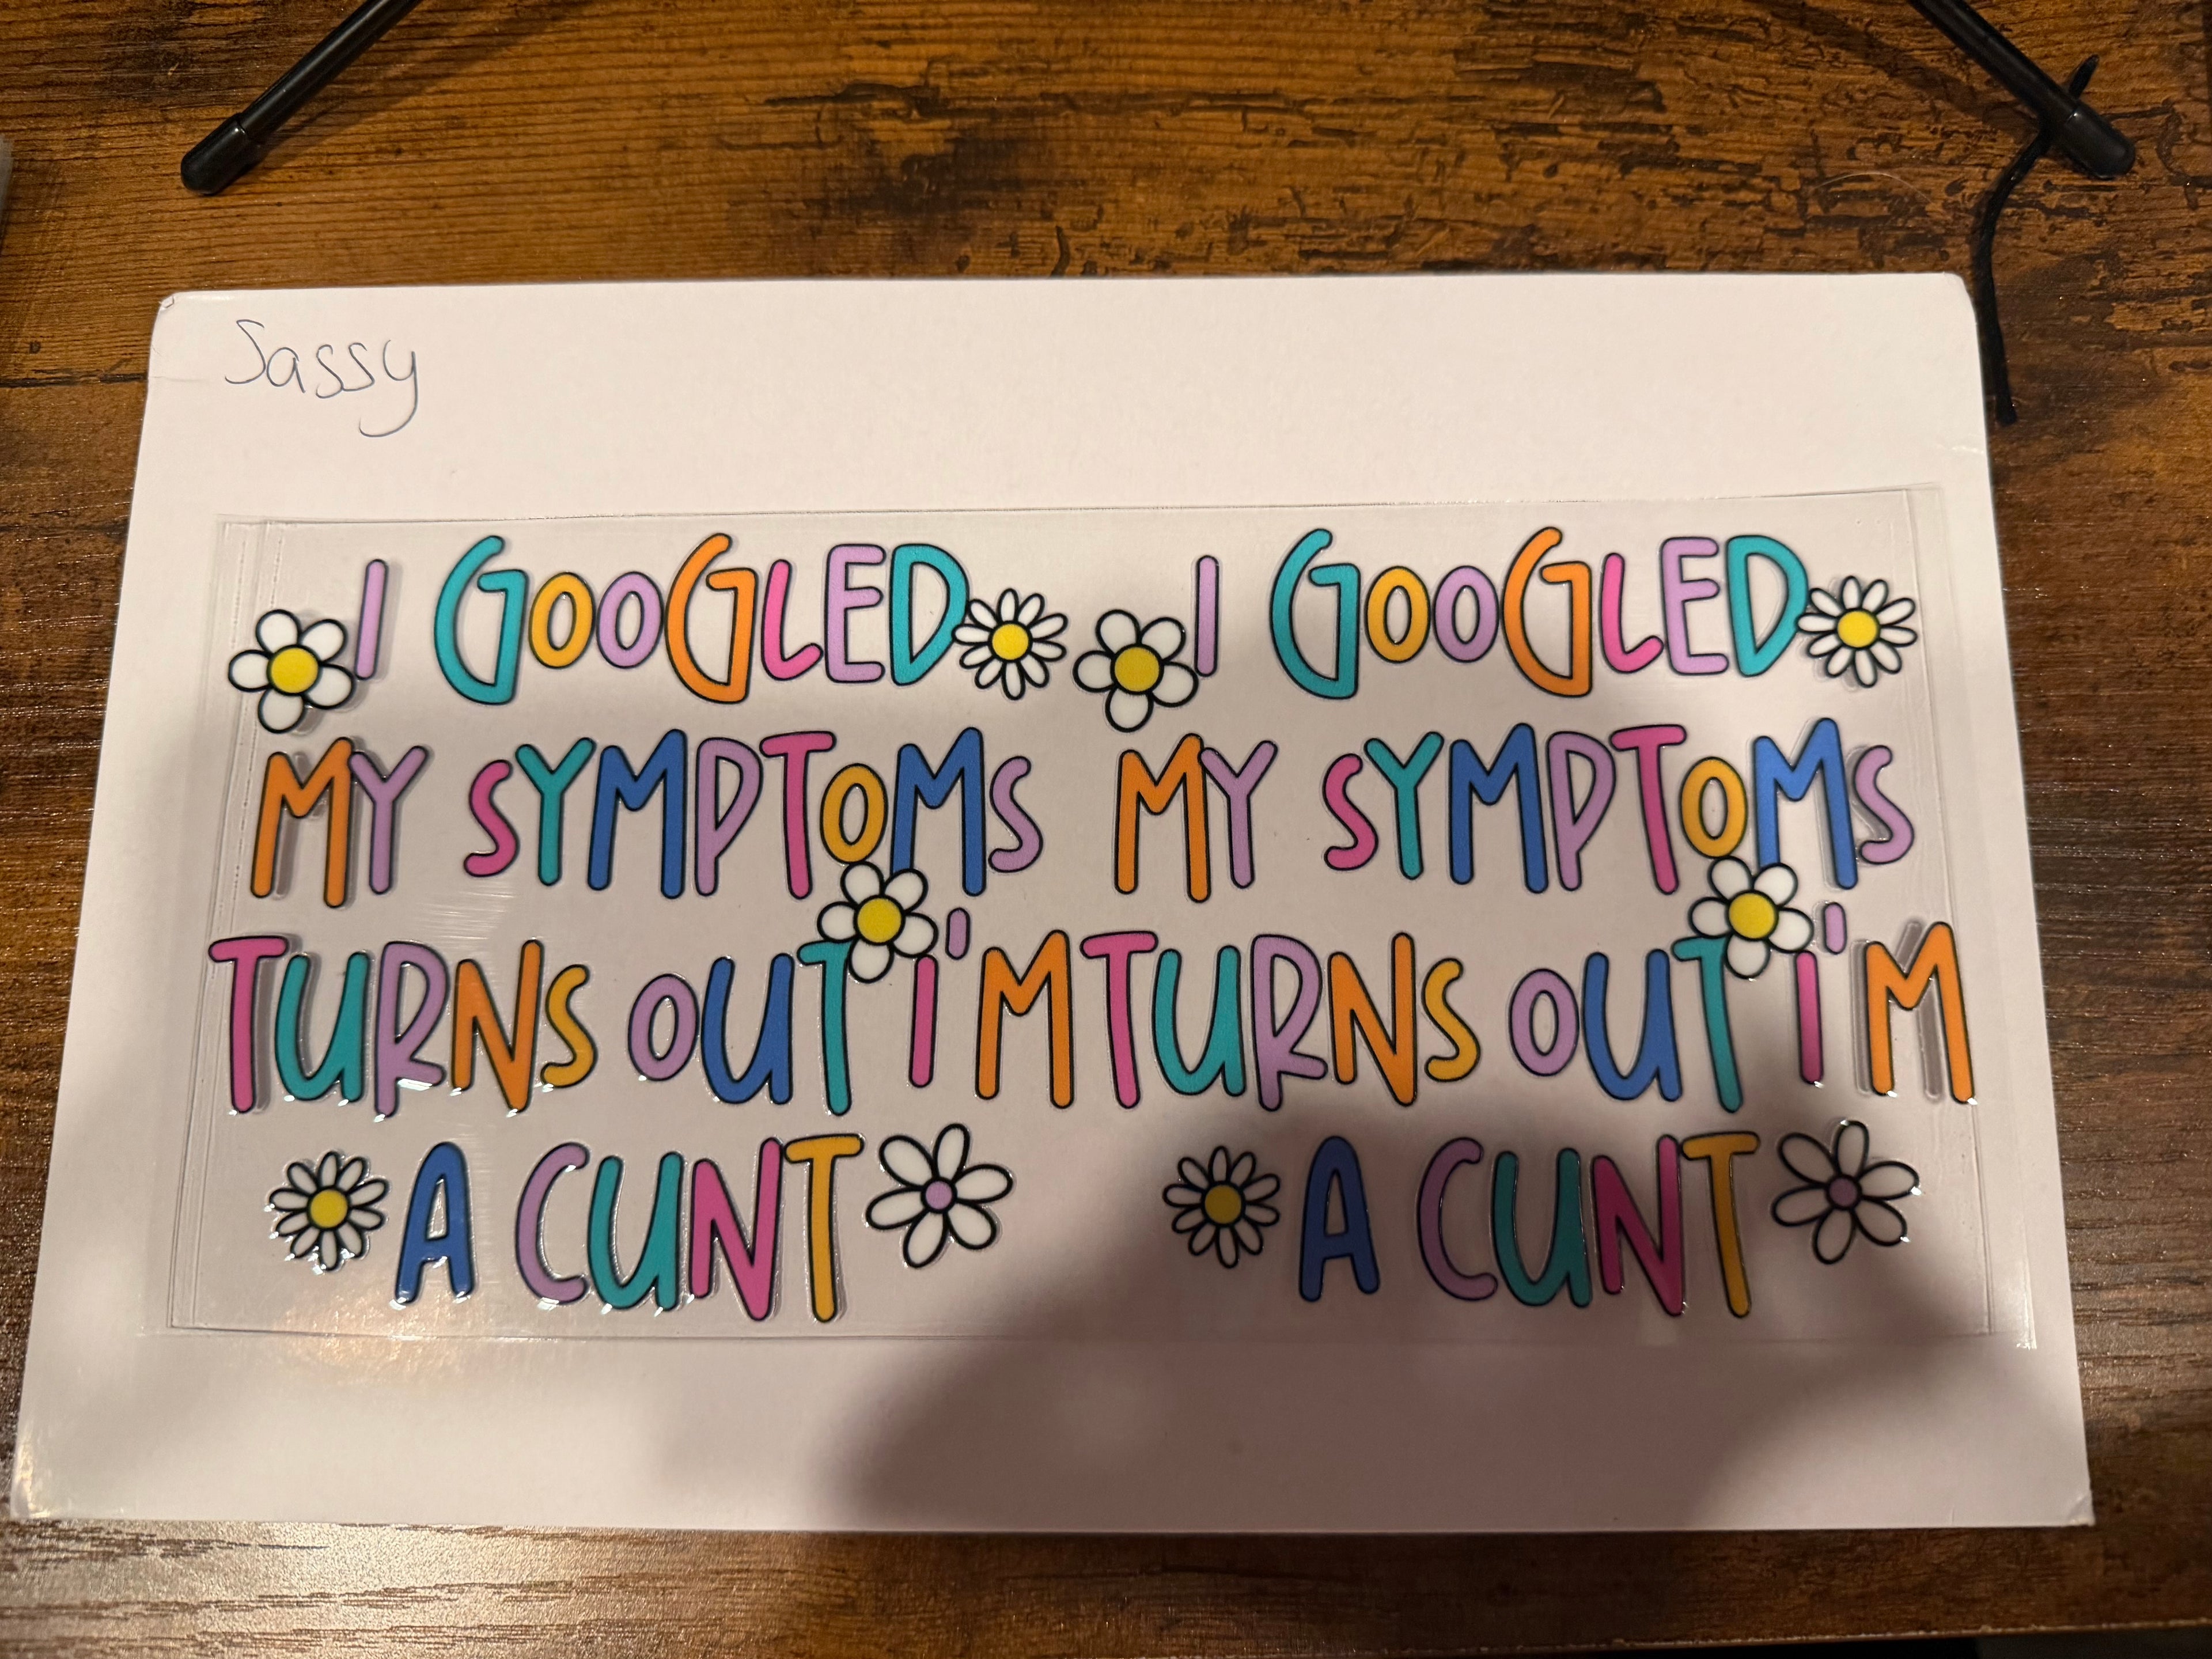 Sassy
I GOOGLED
MY SYMPTOMS
TURNS OUT I'M
A CUNT
I GOOGLED
MY SYMPTOMS
TURNS OUT I'M
A CUNT